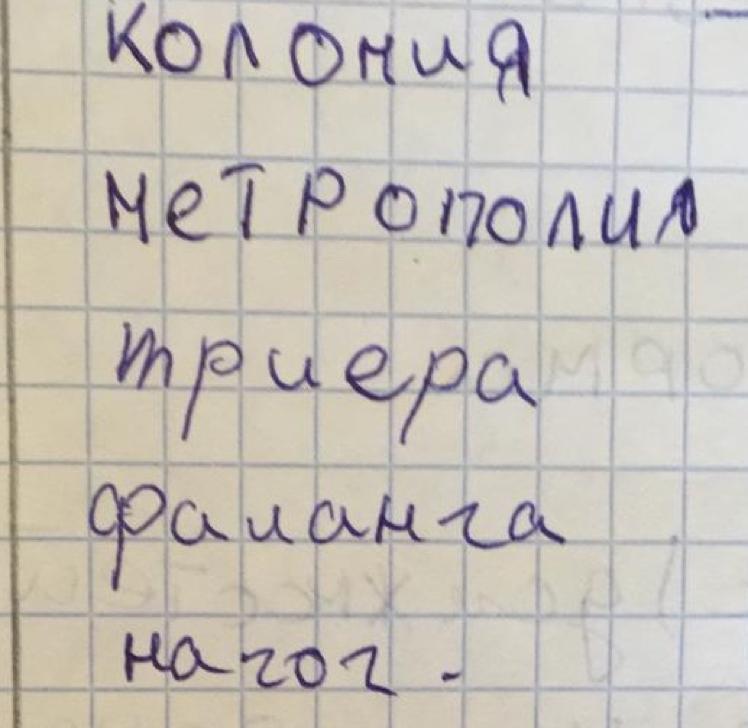 колония
метрополил
триера
фаланга
нагог.